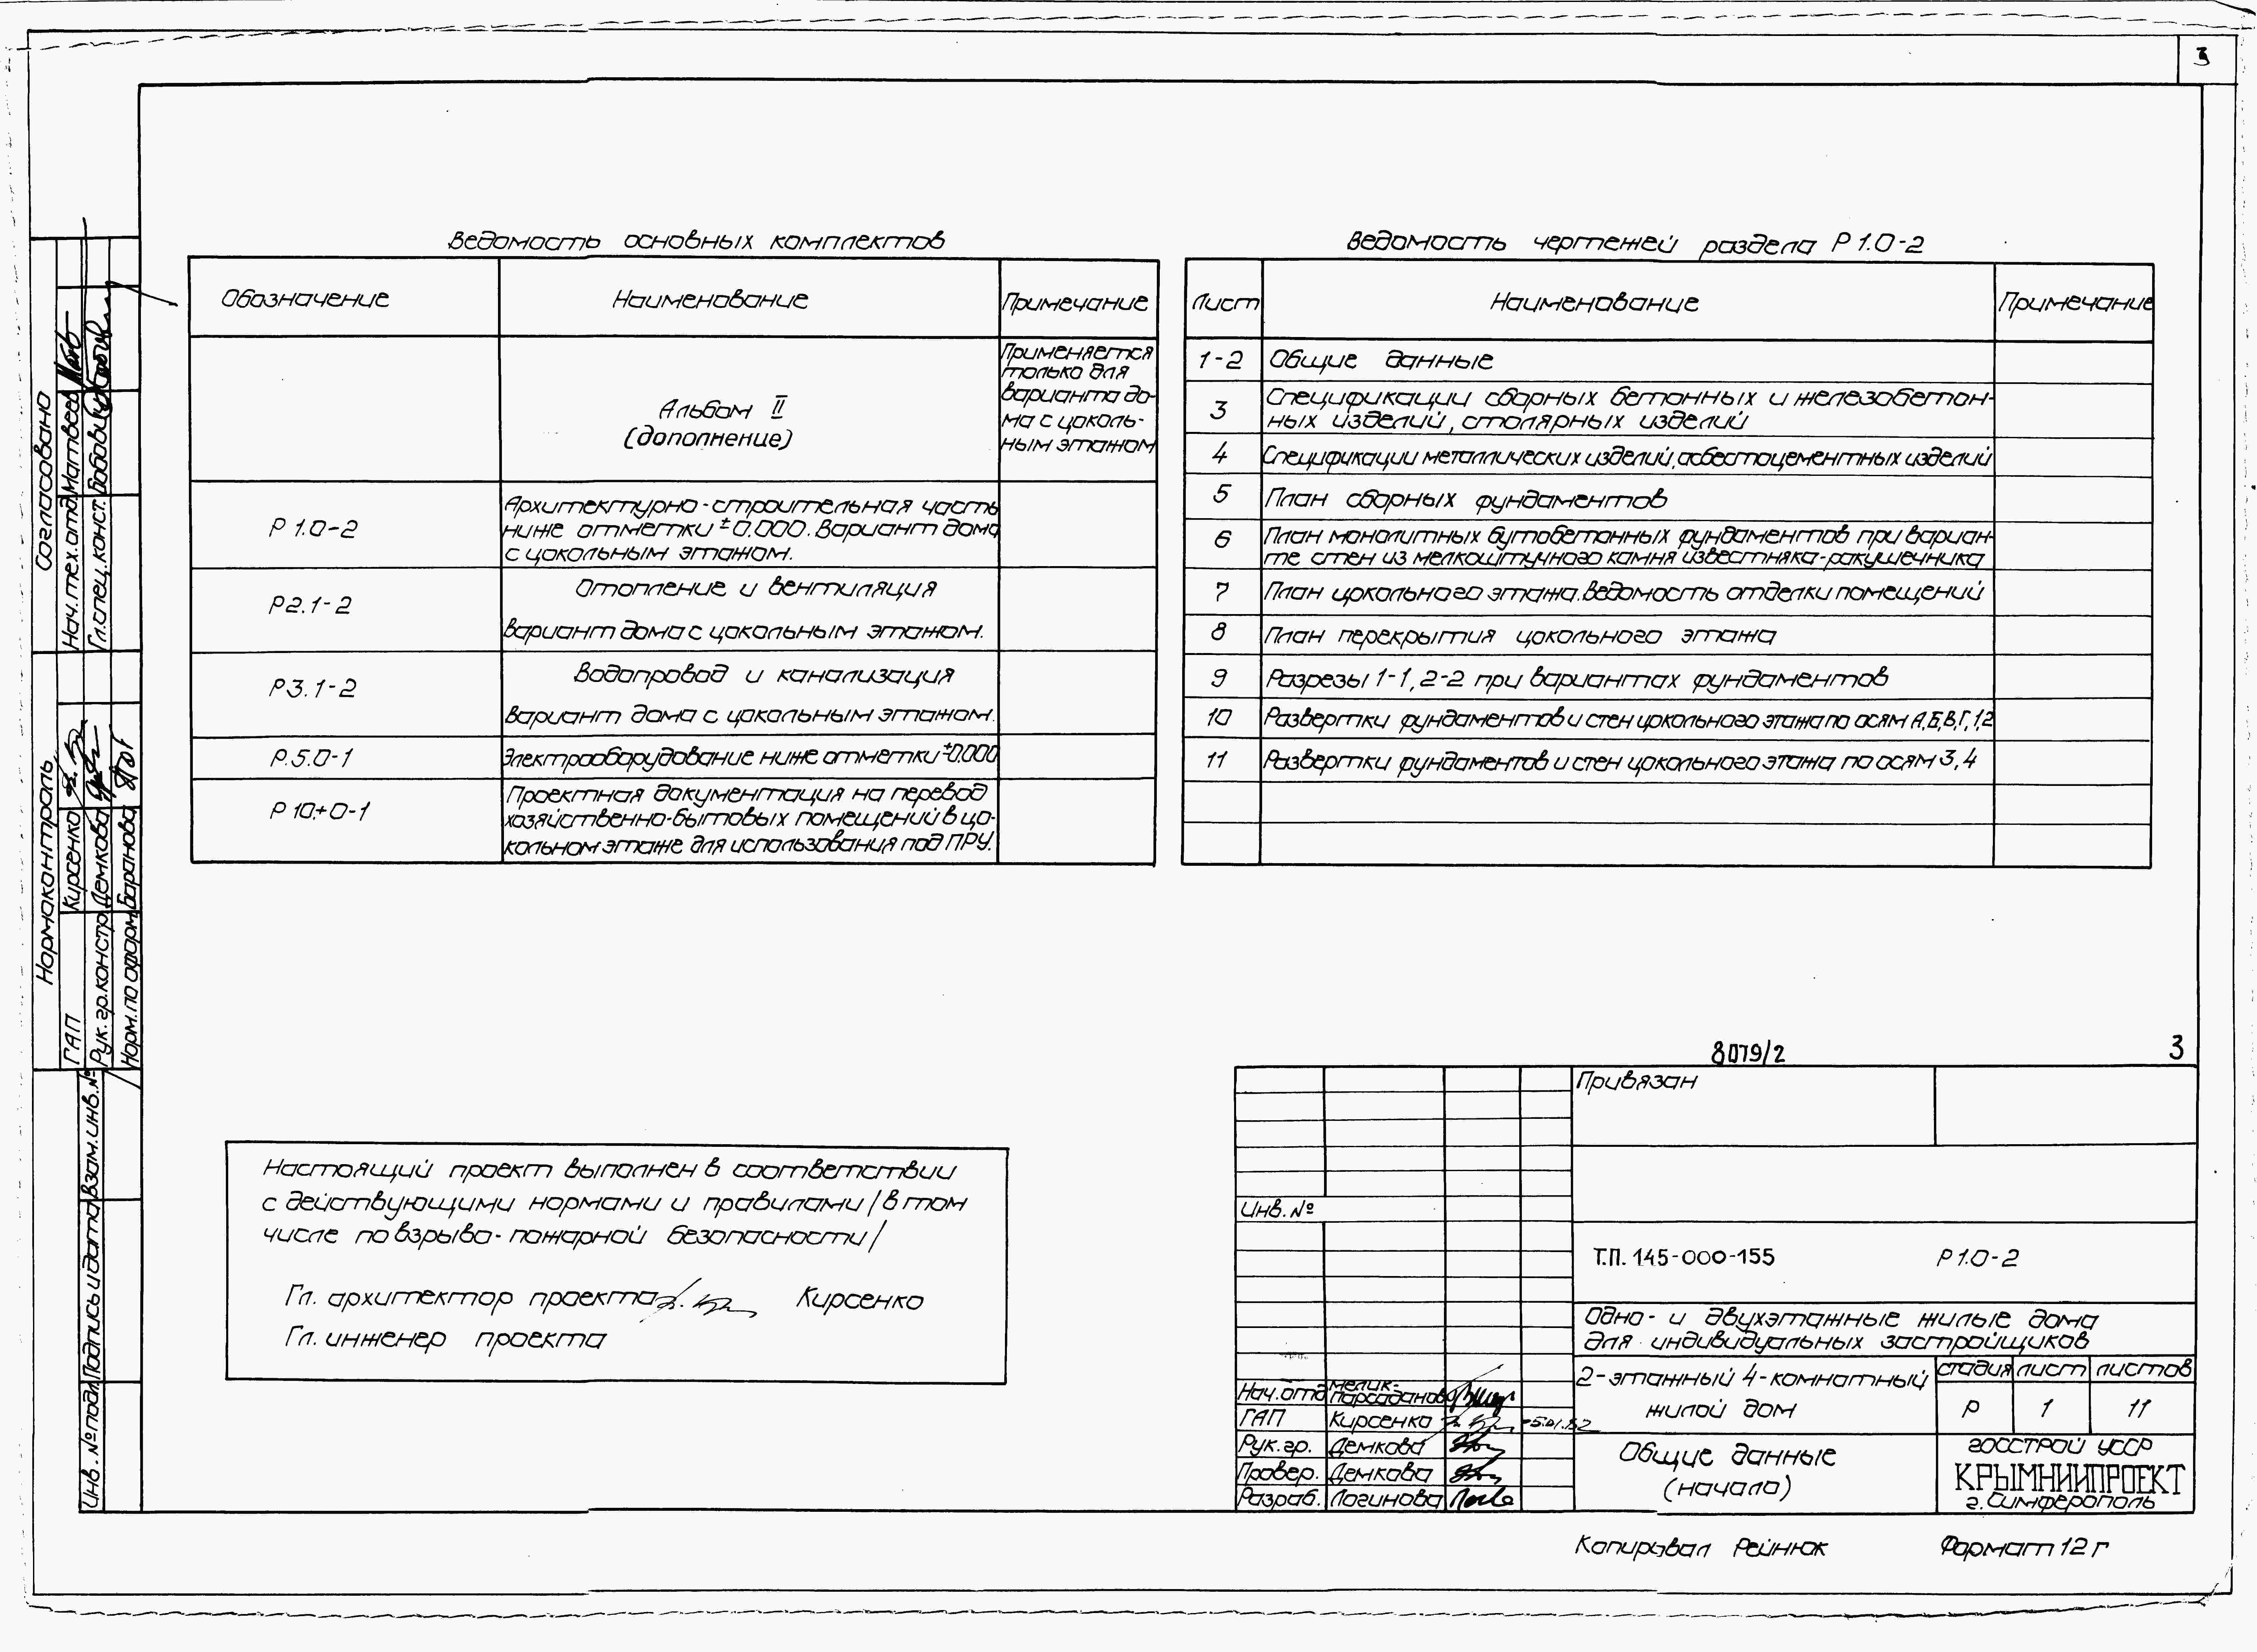 3
Ведомость основных комплектов
Обозначение Наименование Примечание
Альбом II
(дополнение)
Применяется
только для
варианта до-
ма с цоколь-
ным этажом
Р 1.0-2
Архитектурно-строительная часть
ниже отметки ±0.000. Вариант дома
с цокольным этажом.
Р2.1-2
Отопление и вентиляция
Вариант дома с цокольным этажом.
Р3.1-2
Водопровод и канализация
Вариант дома с цокольным этажом.
Р.5.0-1 Электрооборудование ниже отметки ±0.000
Р 10.+0-1
Проектная документация на перевод
хозяйственно-бытовых помещений в цо-
кольном этаже для использования под ПРУ.
Ведомость чертежей раздела Р 1.0-2
Лист Наименование Примечание
1-2 Общие данные
3 Спецификации сборных бетонных и железобетон-
ных изделий, столярных изделий
4 Спецификации металлических изделий, асбестоцементных изделий
5 План сборных фундаментов
6 План монолитных бутобетонных фундаментов при вариан-
те стен из мелкоштучного камня известняка-ракушечника
7 План цокольного этажа. Ведомость отделки помещений
8 План перекрытия цокольного этажа
9 Разрезы 1-1, 2-2 при вариантах фундаментов
10 Развертки фундаментов и стен цокольного этажа по осям А,Б,В,Г,1,2
11 Развертки фундаментов и стен цокольного этажа по осям 3,4
Согласовано
Нач.тех.отд. Матвеев
Гл.спец.конст. Бобович
Нормоконтроль
ГАП Кирсенко
Рук.гр.констр. Демкова
Норм.по оформ. Баранова
Взам.инв.№
Подпись и дата
Инв.№ подл.
Настоящий проект выполнен в соответствии
с действующими нормами и правилами /в том
числе по взрыво-пожарной безопасности/
Гл. архитектор проекта Кирсенко
Гл. инженер проекта
8079/2 3
Привязан
Инв.№
Т.П. 145-000-155 Р 1.0-2
Одно- и двухэтажные жилые дома
для индивидуальных застройщиков
2-этажный 4-комнатный
жилой дом
стадия лист листов
Р 1 11
Общие данные
(начало)
ГОССТРОЙ УССР
КРЫМНИИПРОЕКТ
г. Симферополь
Нач.отд Мелик-
Парсаданов
ГАП Кирсенко
Рук.гр. Демкова
Провер. Демкова
Разраб. Логинова
Копировал Рейнюк Формат 12г